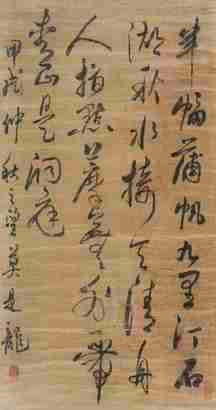 半幅蒲帆九里汀石
湖秋水接天清舟
人指點外一帶
青山是洞庭
甲戌仲秋之望莫是龍